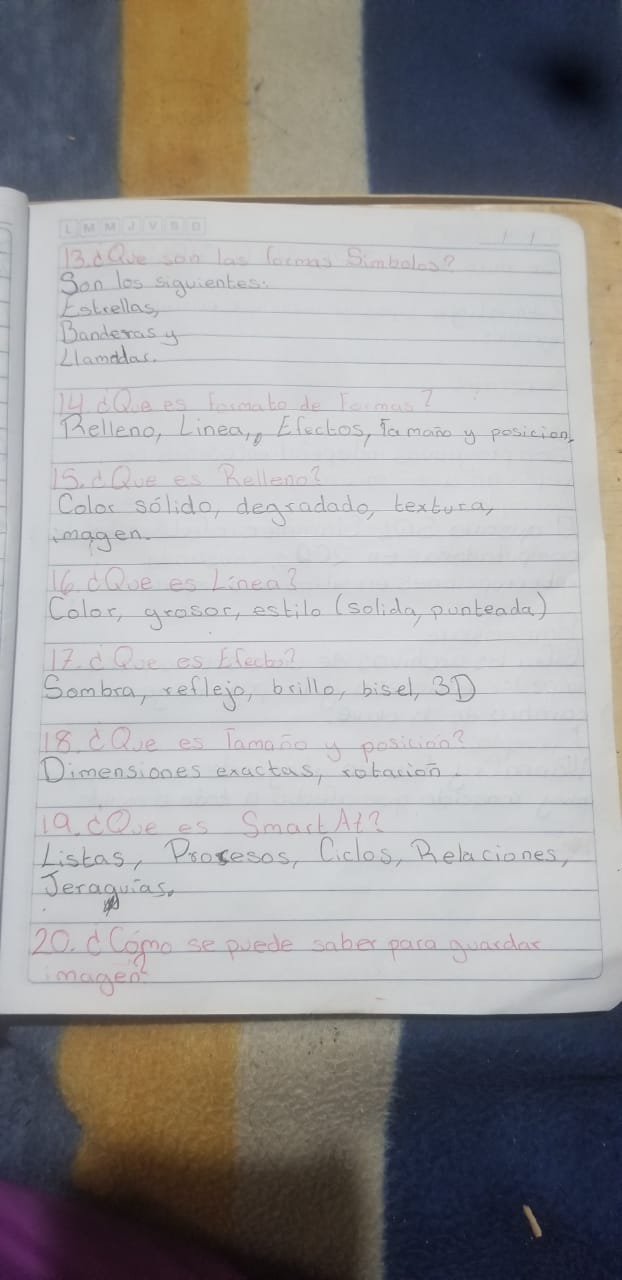 L M M J V S D
13. ¿Que son las formas Simbolos?
Son los siguientes:
Estrellas,
Banderas y
Llamadas.
14. ¿Que es Formato de Formas?
Relleno, Linea,, Efectos, Tamaño y posicion.
15. ¿Que es Relleno?
Color sólido, degradado, textura,
imagen.
16. ¿Que es Linea?
Color, grosor, estilo (solida, punteada)
17. ¿Que es Efecto?
Sombra, reflejo, brillo, bisel, 3D
18. ¿Que es Tamaño y posición?
Dimensiones exactas, rotación.
19. ¿Que es SmartAt?
Listas, Procesos, Ciclos, Relaciones,
Jeraquias.
20. ¿Cómo se puede saber para guardar
imagen?